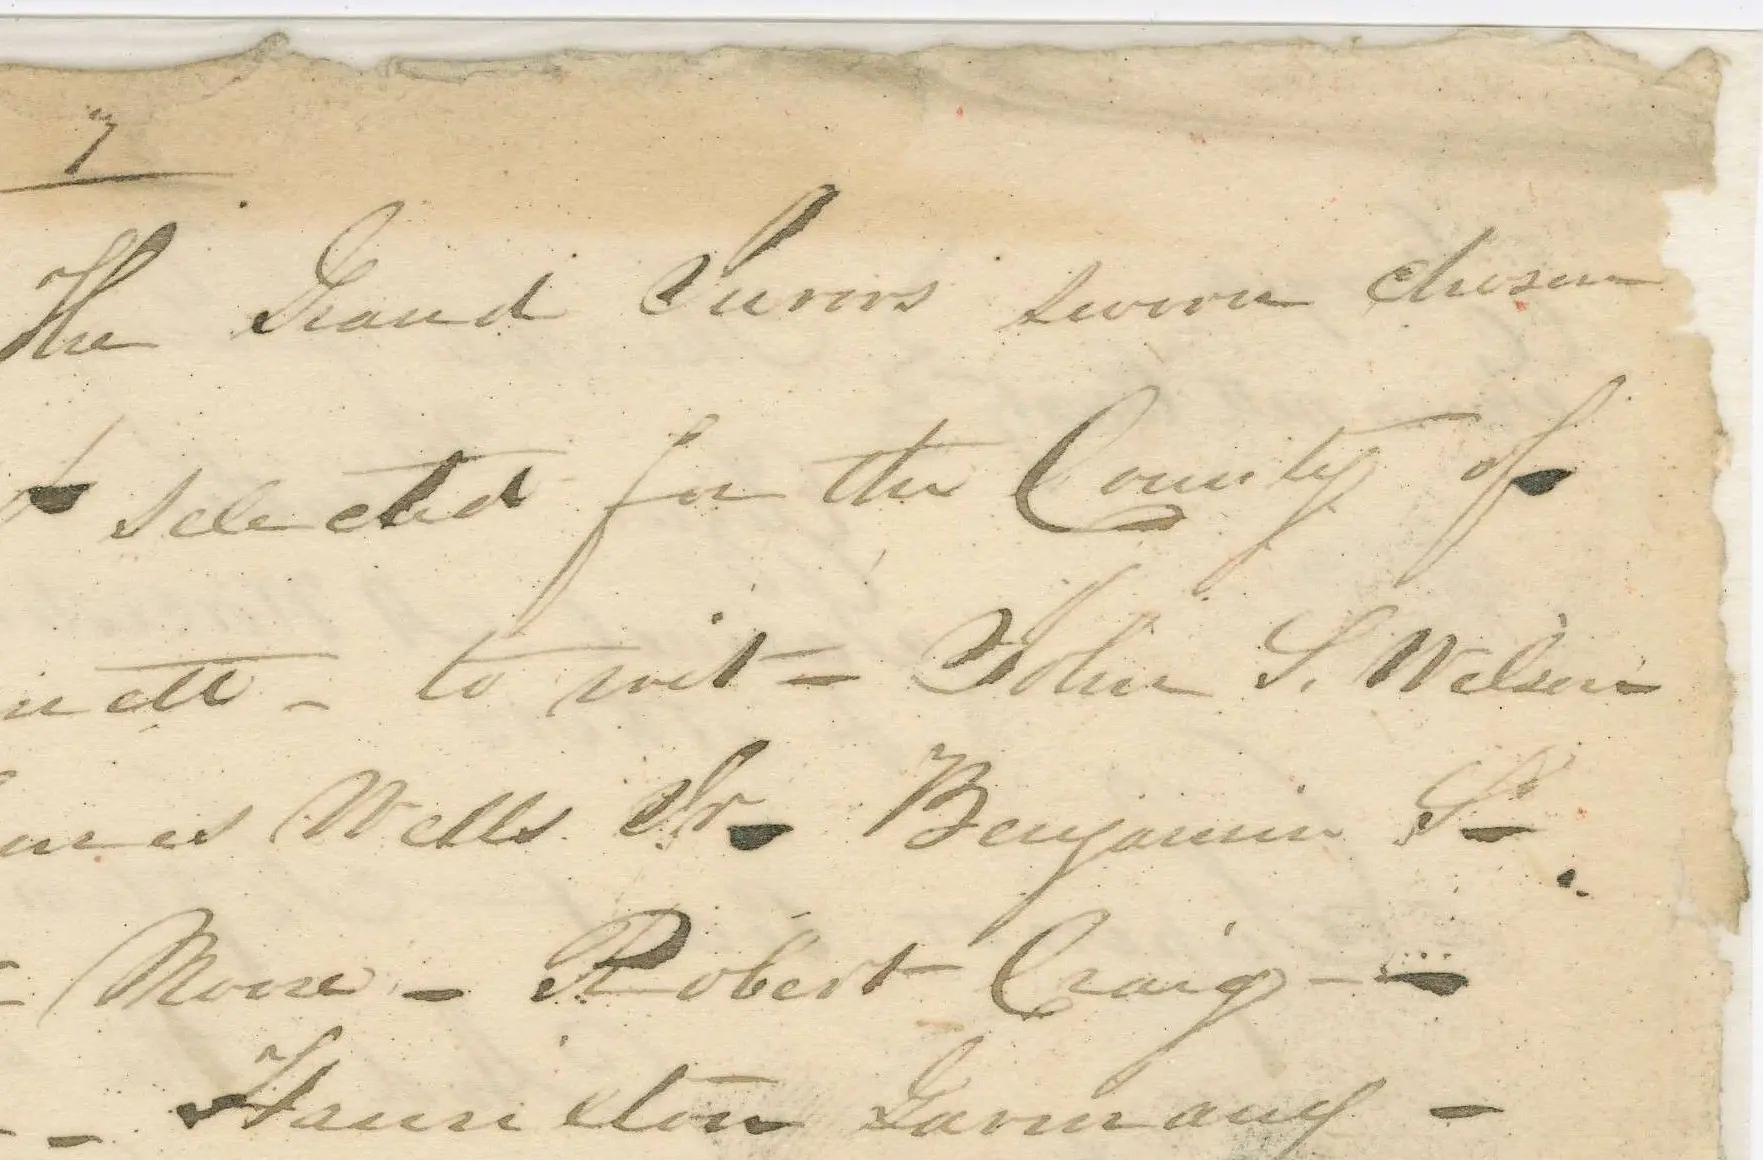 7
The Grand Jurors sworn chosen
selected for the County of
nett - to wit - John S. Wilson
mes Wells Sr - Benjamin S -
- Moore - Robert Craig -
- Hamilton Garmany -